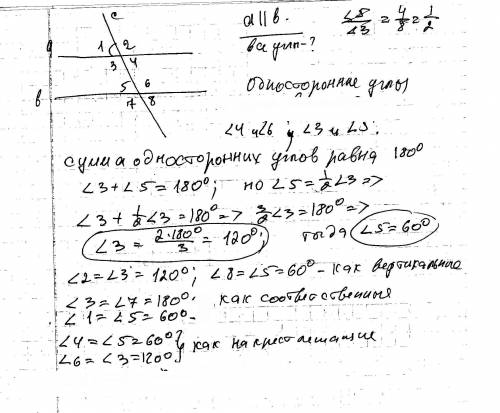 c
a ∥ b.
∠5/∠3 = 4/8 = 1/2
a 1 2
3 4
все углы-?
5 6
в 7 8
односторонние углы
∠4 и ∠6 и ∠3 и ∠5.
сумма односторонних углов равна 180°
∠3+∠5=180°; но ∠5=1/2∠3=>
∠3+1/2∠3=180°=> 3/2∠3=180°=>
∠3=2·180°/3=120°; тогда ∠5=60°
∠2=∠3=120°; ∠8=∠5=60° - как вертикальные
∠3=∠7=180° как соответственные
∠1=∠5=60°
∠4=∠5=60°} как накрест лежащие
∠6=∠3=120°